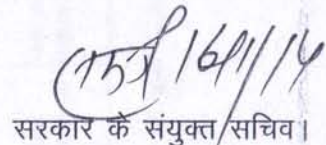 16/1/14
सरकार के संयुक्त सचिव।